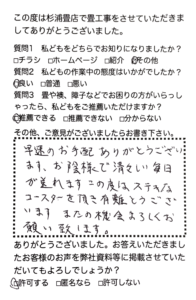 この度は杉浦畳店で畳工事をさせていただきまして
ありがとうございました。
質問1 私どもをどちらでお知りになりましたか?
□チラシ □ホームページ □紹介 □その他
質問2 私どもの作業中の態度はいかがでしたか?
□良い □普通 □悪い
質問3 畳や襖、障子などでお困りの方がいらっし
ゃったら、私どもをご推薦いただけますか?
□推薦できる □推薦できない □分からない
その他、ご意見がございましたらお書き下さい。
早速のお手配ありがとうござい
ます、お陰様で清々しい毎日
が送れます この度はステキな
コースターを頂き有難とうござ
います またの機会よろしくお
願い致します。
ありがとうございました。お答えいただきまし
たお客様のお声を弊社資料等に掲載させていた
だいてもよろしでしょうか?
□許可する □匿名なら □許可しない